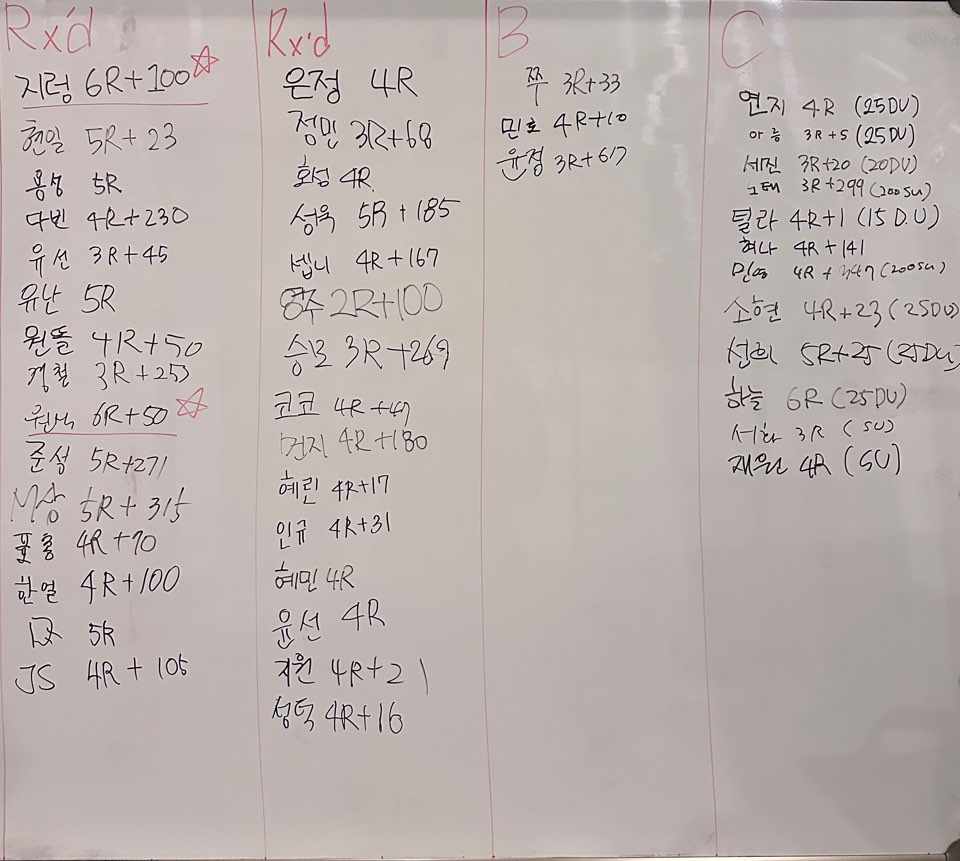 Rx'd
지렁 6R+100
현일 5R+23
용성 5R
다빈 4R+230
유선 3R+45
유난 5R
원똘 4R+50
경철 3R+253
6R+50
준성 5R+271
M상 5R+315
4R+70
한얼 4R+100
5R
JS 4R+105
Rx'd
은정 4R
정민 3R+68
화섭 4R
성욱 5R+185
셉니 4R+167
영주 2R+100
승모 3R+269
코코 4R+47
먼지 4R+180
혜린 4R+17
인규 4R+31
혜민 4R
윤선 4R
지원 4R+21
성덕 4R+16
B
쭈 3R+33
민호 4R+10
윤정 3R+67
C
연지 4R (25DU)
아름 3R+5 (25DU)
세진 3R+20 (20DU)
3R+299 (200SU)
털라 4R+1 (15D.U)
혀나 4R+141
민영 4R+347 (200SU)
소현 4R+23 (25DU)
선희 5R+25 (25DU)
하늘 6R (25DU)
서화 3R (SU)
재원 4R (SU)